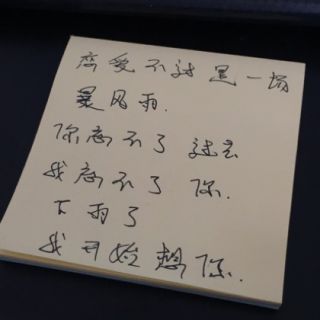 恋爱不过是一场
暴风雨.
你离不了 过去
我离不了 你.
下雨了
我开始想你.